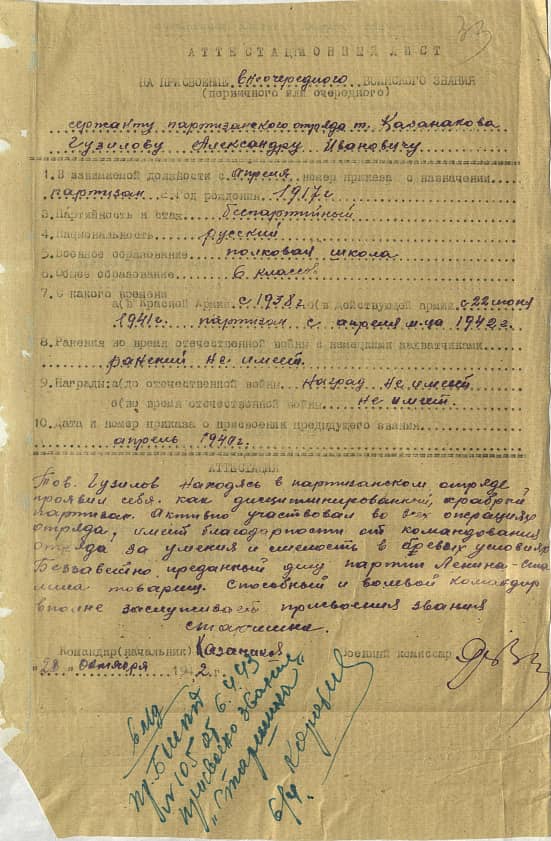 33
АТТЕСТАЦИОННЫЙ ЛИСТ
НА ПРИСВОЕНИЕ внеочередного ВОИНСКОГО ЗВАНИЯ
(первичного или очередного)
сержанту партизанского отряда т. Казанакова
Гузилову Александру Ивановичу
1. В занимаемой должности с апреля номер приказа о назначении
партизан 2. Год рождения 1917 г
3. Партийность и стаж беспартийный
4. Национальность русский
5. Военное образование полковая школа
6. Общее образование 6 классов
7. С какого времени
а(в Красной Армии с 1938 г б(в действующей армии с 22 июня
1941г. партизан с апреля м-ца 1942 г.
8. Ранения во время отечественной войны с немецкими захватчиками
ранений не имеет.
9. Награды: а(до отечественной войны наград не имеет
б(во время отечественной войны не имеет.
10. Дата и номер приказа о присвоении предыдущего звания
апрель 1940 г.
АТТЕСТАЦИЯ
Тов. Гузилов находясь в партизанском отряде,
проявил себя как дисциплинированный, храбрый
партизан. Активно участвовал во всех операциях
отряда, имеет благодарности от командования
отряда за умения и смелость в боевых условиях
Беззаветно преданный делу партии Ленина-Ста
лина товарищ. Способный и волевой командир
вполне заслуживает присвоения звания
старшина.
Командир(начальник) Казанаков Военный комиссар
"28" октября 1942 г.
пр. БШПД
№ 105 от 6.4.43
присвоено звание
"Старшина"
6/4.